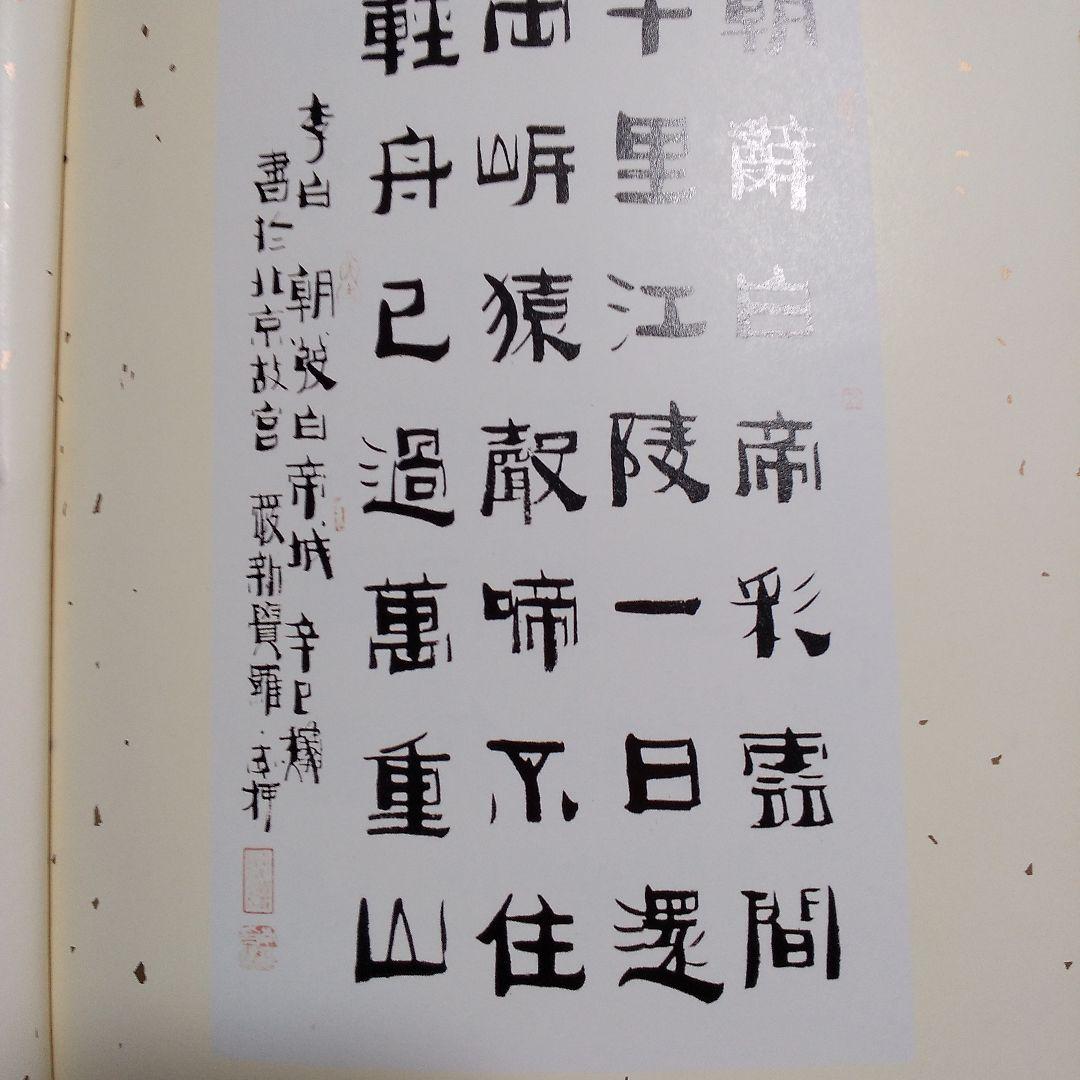 朝辭白帝彩雲間
千里江陵一日還
兩岸猿聲啼不住
輕舟已過萬重山
李白 朝發白帝城 辛巳
書於北京故宮